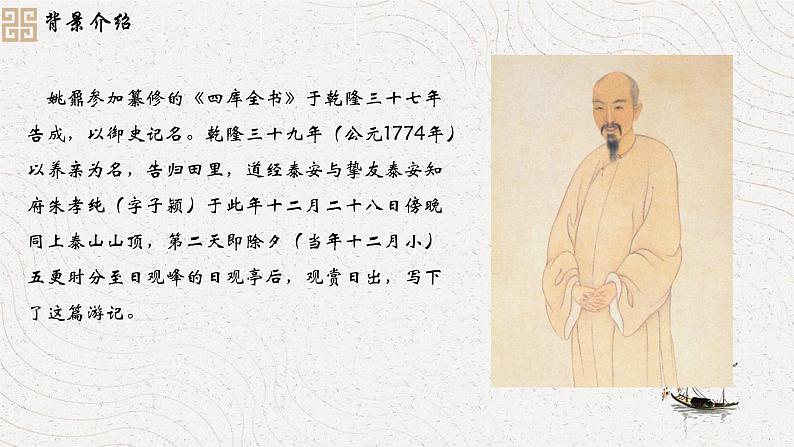 背景介绍
姚鼐参加纂修的《四库全书》于乾隆三十七年
告成，以御史记名。乾隆三十九年（公元1774年）
以养亲为名，告归田里，道经泰安与挚友泰安知
府朱孝纯（字子颍）于此年十二月二十八日傍晚
同上泰山山顶，第二天即除夕（当年十二月小）
五更时分至日观峰的日观亭后，观赏日出，写下
了这篇游记。